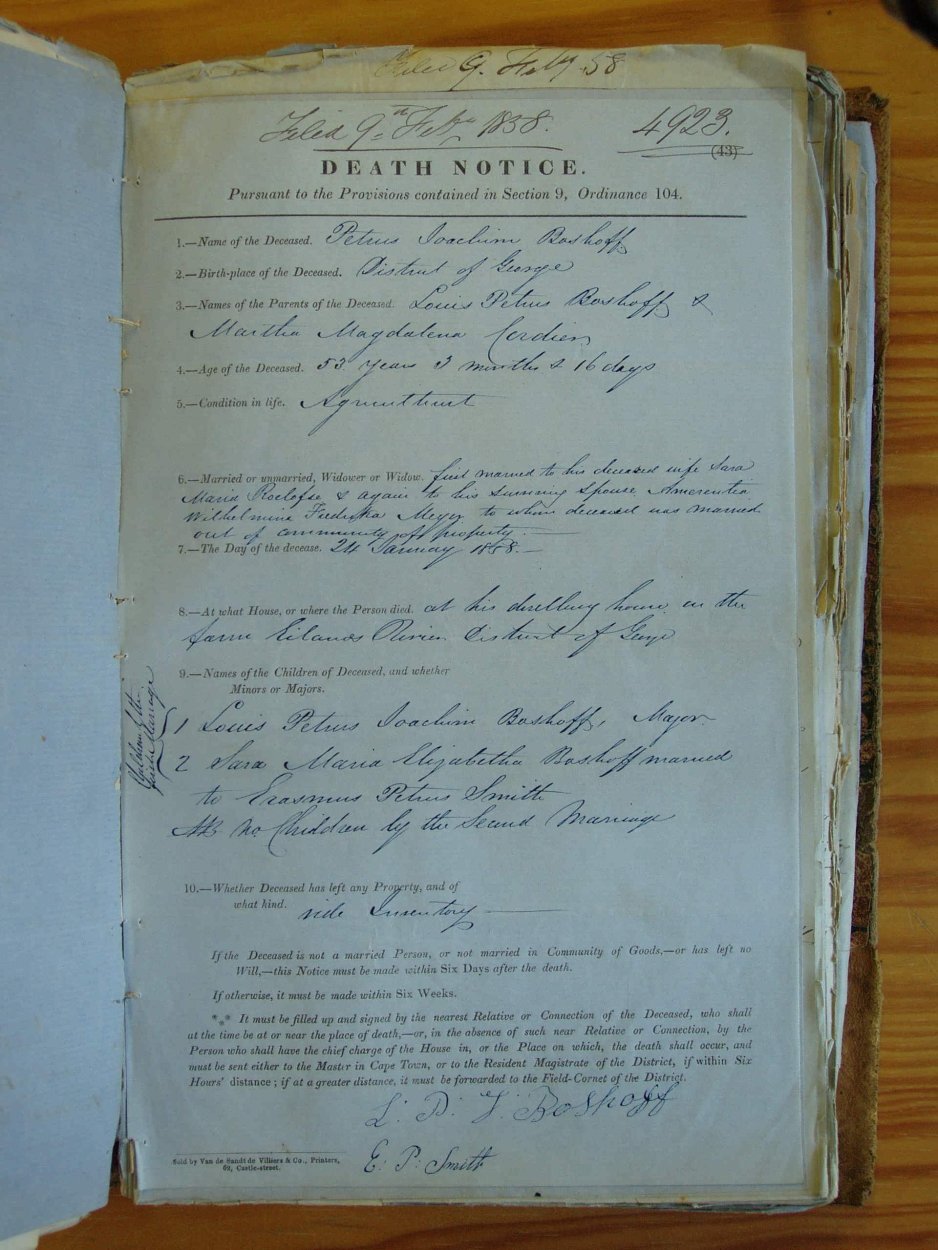 Filed 9. Feby 58
Filed 9th Feby 1858.
4923.
(43)
DEATH NOTICE.
Pursuant to the Provisions contained in Section 9, Ordinance 104.
1.—Name of the Deceased. Petrus Joachim Boshoff
2.—Birth-place of the Deceased. District of George
3.—Names of the Parents of the Deceased. Louis Petrus Boshoff &
Martha Magdalena Cordier
4.—Age of the Deceased. 53 years 3 months & 16 days
5.—Condition in life. Agriculturist
6.—Married or unmarried, Widower or Widow. first married to his deceased wife Sara
Maria Roelofse & again to his surviving spouse
Wilhelmina Fredrika Meyer to whom deceased was married
out of community of property.—
7.—The Day of the decease. 24 January 1858.—
8.—At what House, or where the Person died. at his dwelling house on the
farm Eilands Rivier District of George
9.—Names of the Children of Deceased, and whether
Minors or Majors.
Children of the
first Marriage
1 Louis Petrus Joachim Boshoff, Major
2 Sara Maria Elizabetha Boshoff married
to Erasmus Petrus Smith
NB no Children by the Second Marriage
10.—Whether Deceased has left any Property, and of
what kind. vide Inventory
If the Deceased is not a married Person, or not married in Community of Goods,—or has left no
Will,—this Notice must be made within Six Days after the death.
If otherwise, it must be made within Six Weeks.
*⁎* It must be filled up and signed by the nearest Relative or Connection of the Deceased, who shall
at the time be at or near the place of death,—or, in the absence of such near Relative or Connection, by the
Person who shall have the chief charge of the House in, or the Place on which, the death shall occur, and
must be sent either to the Master in Cape Town, or to the Resident Magistrate of the District, if within Six
Hours' distance; if at a greater distance, it must be forwarded to the Field-Cornet of the District.
L. P. J. Boshoff
E. P. Smith
Sold by Van de Sandt de Villiers & Co., Printers,
62, Castle-street.